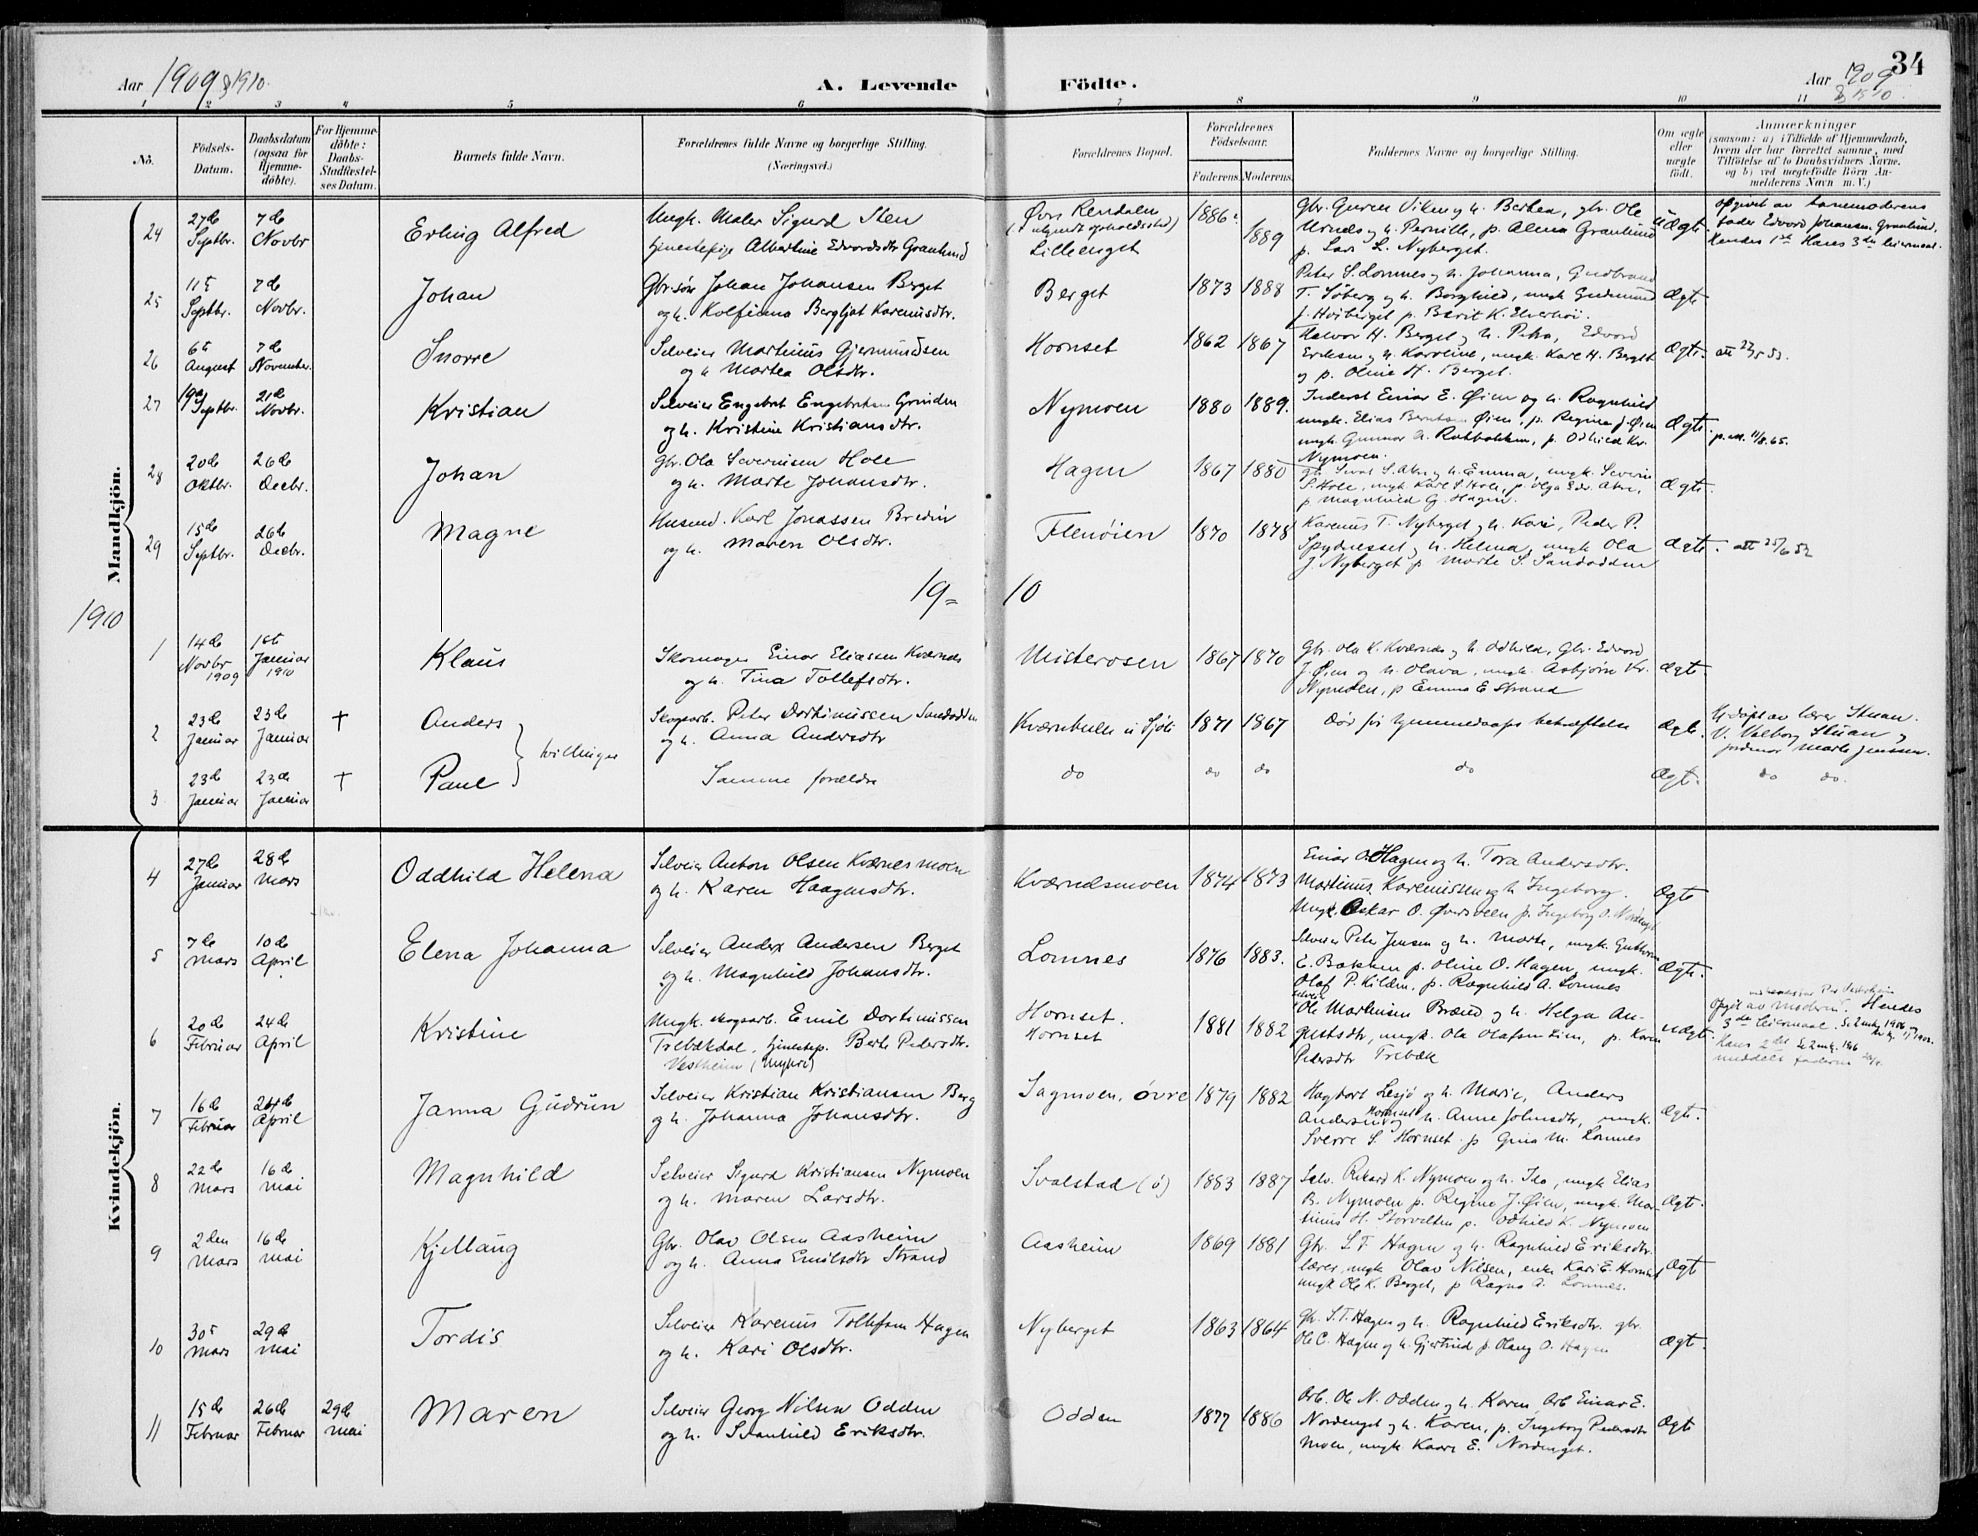 34
Aar 1909 & 1910.
A. Levende Födte.
Aar 1909 & 1910.
1 2 3 4 5 6 7 8 9 10 11
No.
Födsels-Datum.
Daabsdatum (ogsaa for Hjemme-döbte).
For Hjemme-döbte: Daabs-Stadfæstel-ses Datum.
Barnets fulde Navn.
Forældrenes fulde Navne og borgerlige Stilling. (Næringsvei.)
Forældrenes Bopæl.
Forældrenes Födselsaar.
Faderens. Moderens.
Faddernes Navne og borgerlige Stilling.
Om ægte eller uægte födt.
Anmærkninger
(saasom: a) i Tilfælde af Hjemmedaab,
hvem der har forrettet samme, med
Tilföielse af to Daabsvidners Navne.
og b) ved uægtefödte Börn An-
melderens Navn m. V.)
Mandkjön.
24 27de Septbr. 7de Novbr Erling Alfred
Ungk. Maler Sigurd Sten
tjenestepige Albertine Edvardsdtr Granlund
Øvre Rendalen
Lilleenget
1886 1889
Uægte
25 11te Septbr. 7de Novbr. Johan
Gbr.søn Johan Johansen Berget
og h. Kolfinna Bergljot Karenusdtr.
Berget 1873 1888
Peter S. Lomnes og h. Johanna, Gudbrand
T. Søberg og h. Borghild, ungk Gudmund
J. Høiberget p. Berit K. Elverhøi.
Ægte
26 6te August 7de November. Snorre
Selveier Martinus Gjermundsen
og h Martea Olsdtr.
Hornset 1862 1867
Halvor H. Berget og h. Petra, Edvard
Eriksen og h. Karoline, ungk. Kare H. Berget
og p. Oline H. Berget.
Ægte.
27 19de Septbr. 21de Novbr. Kristian
Selveier Engebret Engebretsen Grinden
og h. Kristine Kristiansdtr.
Nymoen 1880 1889.
Inderst Einar E. Øien og h. Ragnhild
ungk. Elias Berntsen Øien, p. Regine J. Øien
ungk Gunnar A. p. Odhild Kr.
Nymoen.
Ægte.
28 20de Oktbr. 26de Decbr. Johan
Gbr. Ola Severinsen Hole
og h. Marte Johansdtr.
Hagen 1867 1880
h. Emma, ungk. Severin
S. Hole, ungk Karl S. Hole, p. Olga Edv. Akre,
p Magnhild G. Hagen.
Ægte.
29 15de Septbr. 26de Decbr. Magne
Husmd. Karl Jonassen Bredin
og h. Maren Olsdtr.
Flenøien 1870 1878
Karenus T. Nyberget og h. Kari, Peder P.
Spydnesset og h. Helma, ungk Ola
J. Nyberget p Marte S. Sandodden
Ægte. att 25/6 52
19= 10
1910
1 14de Novbr 1909 1ste Januar 1910 Klaus
Skomager Einar Eliassen Kværnes
og h. Tina Tollefsdtr.
Misterosen 1867 1870
Gbr. Ola K. Kværnes og h. Odhild, Gbr. Edvard
J. Øien og h. Olava, ungk. Asbjørn Kr.
Nymoen, p Emma E Strand
Ægte.
2 23de Januar 23de Januar † Anders
Skogsarb. Peter Dortinussen Sandodden
og h. Anna Andersdtr
1871 1867
Død før hjemmedaaps bekræftelse
Ægte.
Hj.døpt av lærer Stuan.
V. Valborg Stuan og
jordmor Marte Jenssen.
tvillinger
3 23de Januar 23de Januar † Paul
Samme forældre
do do do do Ægte. do do.
Kvindekjön.
4 27de Januar 28de Mars Oddhild Helena
Selveier Anton Olsen Kværnesmoen
og h. Karen Haagensdtr.
Kværnesmoen 1874 1873
Einar O. Hagen og h. Tora Andersdtr.
Martinus Karenussen og h Ingeborg.
Ungk. Oskar O. Øversveen p. Ingeborg O. Nordenget
Ægte
5 7de Mars 10de April Elena Johanna
Selveier Anders Andersen Berget
og h. Magnhild Johansdtr.
Lomnes 1876 1883.
Selveier Peter Jensen og h. Marte, ungk. Guttorm
E. Bakken p. Oline O. Hagen, ungk.
Olaf P. Kilden, p. Ragnhild A. Lomnes
Ægte.
6 20de Februar 24de April Kristine
Ungk. skogsarb. Emil Dortinussen
Trebækdal, tjenestep. Berte Pedersdtr.
Vestheim (Mykre)
Hornset.
Hornset
1881 1882
selveier
Ole Martinsen Bræind og h. Helga Au-
gustsdtr, ungk. Ola Olafsen Lien, p. Karen
Pedersdtr Trebæk
Uægte.
Opgit av moderen. Hendes
3de leiermaal.
7 16de Februar 24de April Janna Gudrun
Selveier Kristian Kristiansen Berg
og h. Johanna Johansdtr.
Sagmoen, øvre 1879 1882
Hagbart Lesjø og h. Marie, Anders
Andersen Hornset og h. Anne Johnsdtr, ungk.
Sverre S. Hornset p Gina M. Lomnes
Ægte.
8 22de Mars 16de Mai Magnhild
Selveier Sigurd Kristiansen Nymoen
og h. Maren Larsdtr.
Svalstad (ø) 1883 1887
Selv. Rikard K. Nymoen og h. Ida, ungk Elias
B. Nymoen p. Regine J. Øien, ungk. Mar-
tinus H. Storvelten p. Odhild K. Nymoen
Ægte.
9 2den Mars 16de Mai Kjellaug
Gbr. Olav Olsen Aasheim
og h. Anna Emilsdtr Strand
Aasheim 1869 1881
Gbr. S.T. Hagen og h. Ragnhild Eriksdtr.
lærer, ungk Olav Nilsen, enke Kari E. Hornset,
ungk Ole K. Berget, p Ragna A. Lomnes.
Ægte
10 30te Mars 29de Mai Tordis
Selveier Karenus Tollefsen Hagen
og h. Kari Olsdtr.
Nyberget 1863 1864
Gbr. S.T. Hagen og h. Ragnhild Eriksdtr. gbr.
Ole C. Hagen og h. Gjertrud p. Olaug O. Hagen
Ægte.
11 15de Februar 26de Februar 29de Mai Maren
Selveier Georg Nilsen Odden
og h. Svanhild Eriksdtr.
Odden 1877 1886
Arb. Ole N. Odden og h. Karen, Arb Einar E.
Nordenget og h. Karen, p. Ingeborg Pedersdtr
Moen, ungk Kaare E. Nordenget.
Ægte